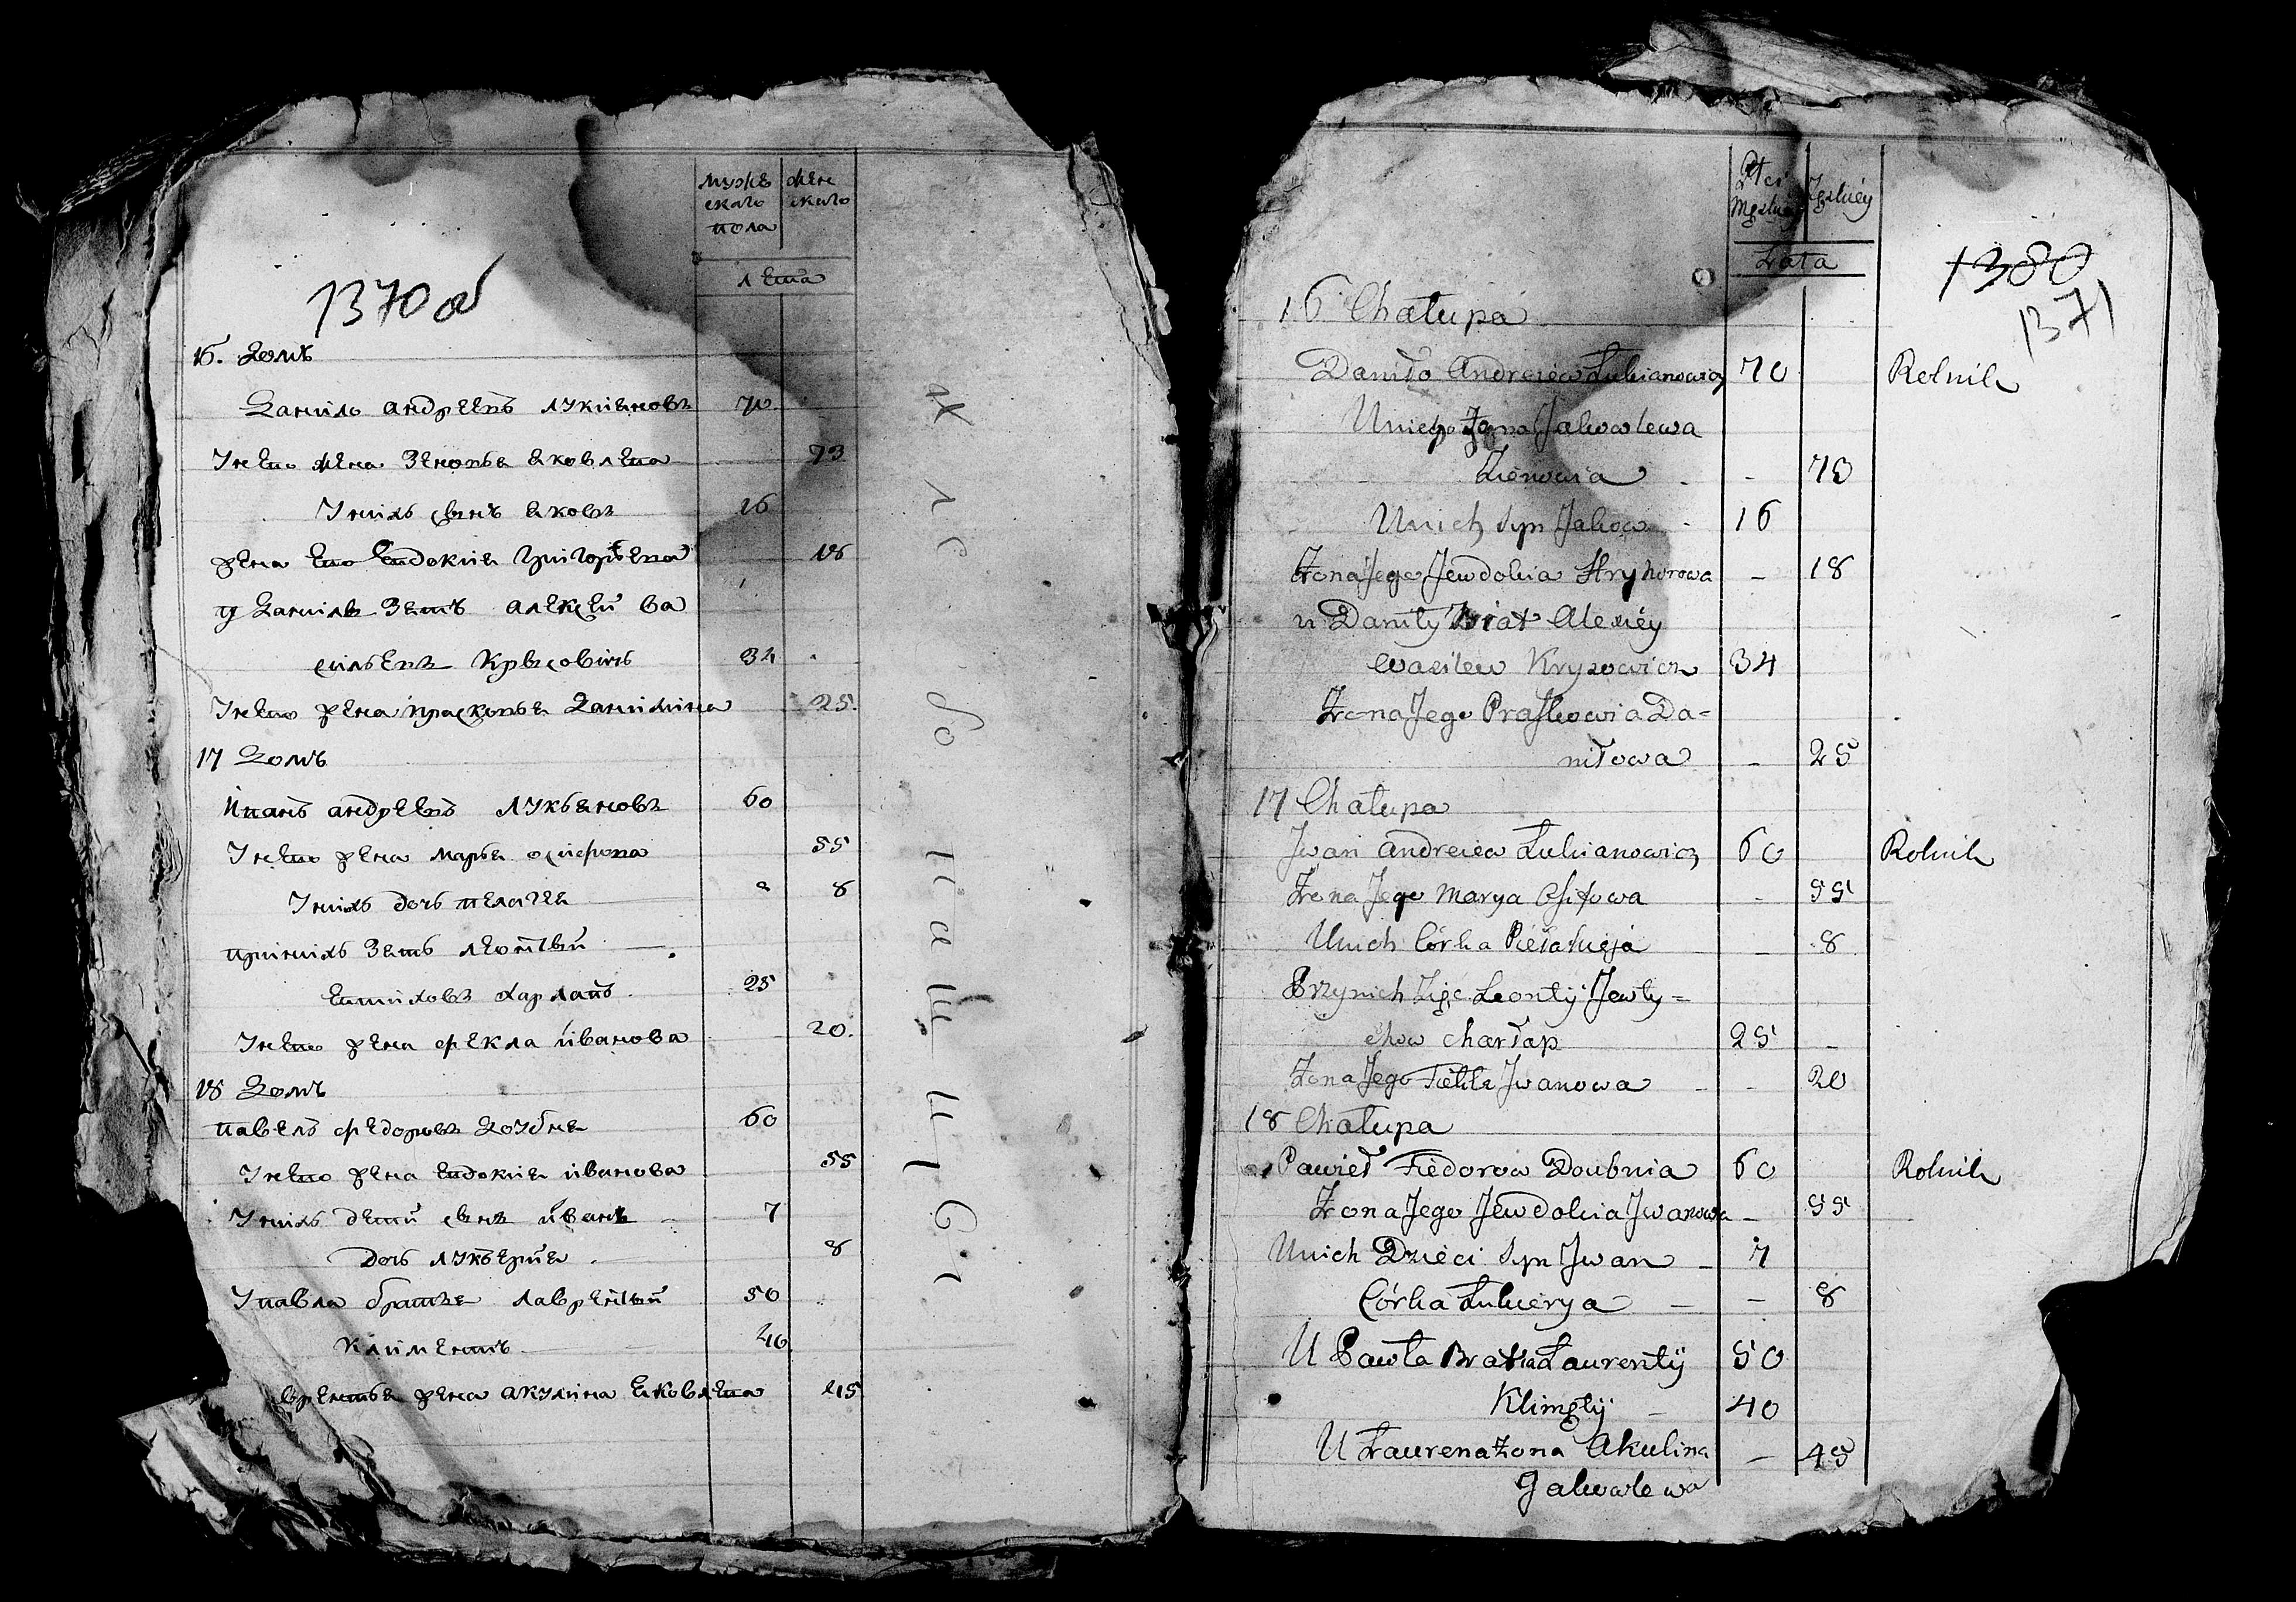 мужс
скаго
пола
женс
скаго
лета
1370 об
16. Домъ
Данило андреевъ лукиановъ 70
Унево жена Зеновъя яковлева 73
Унихъ сынъ яковъ 16
жена ево Евдокия григоръева 18
у Данилы Зеть алексей ва
сильевъ Крысовичь 34
Унево жена прасковъя Данилина 25.
17 Домъ
Иванъ андреевъ лукъяновъ 60
Унево жена маръя осифова 55
Унихъ дочь пелагея 8
принихъ Зеть леонтъй
Евтиховъ харлапъ. 25
Унево жена фекла иванова 20.
18 Домъ
павелъ федоровъ доубня 60
Унево жена евдокия иванова 55
Унихъ дети сынъ иванъ 7
дочь лукъерия 8
Упавла братъя лаврентъй 50
климентъ 40
врентъя жена акулина яковлева 45
Płci
Męskiéy
Żeńskiéy
Lata
1380
1371
16 Chałupa
Daniło Andreiew Łukianowicz 70 Rolnik
Uniego Żona Jakowlewa
Zienowia - 73
Unich Syn Jakow - 16
Żona Jego Jewdokia Hryhorowa - 18
u Daniły Ziat Alexiéy
Wasilew Krysowicz 34
Żona Jego Praskowia Da=
niłowa - 25
17 Chałupa
Jwan Andreiew Łukianowicz 60 Rolnik
Żona Jego Marya Osifowa - 55
Unich Córka Piełahieja - 8
Przynich Zięc Leontÿ Jewty=
chow Charłap 25 -
Żona Jego Fiekła Jwanowa - - 20
18 Chałupa
Pawieł Fiedorow Doubnia 60 Rolnik
Żona Jego Jewdokia Jwanowa - 55
Unich Dzieci Syn Jwan - 7
Córka Łukierya - - 8
U Pawła Bratia Laurentÿ 50
Klimętÿ - 40
U Łaurena żona Akulina - 45
Jakowlewa